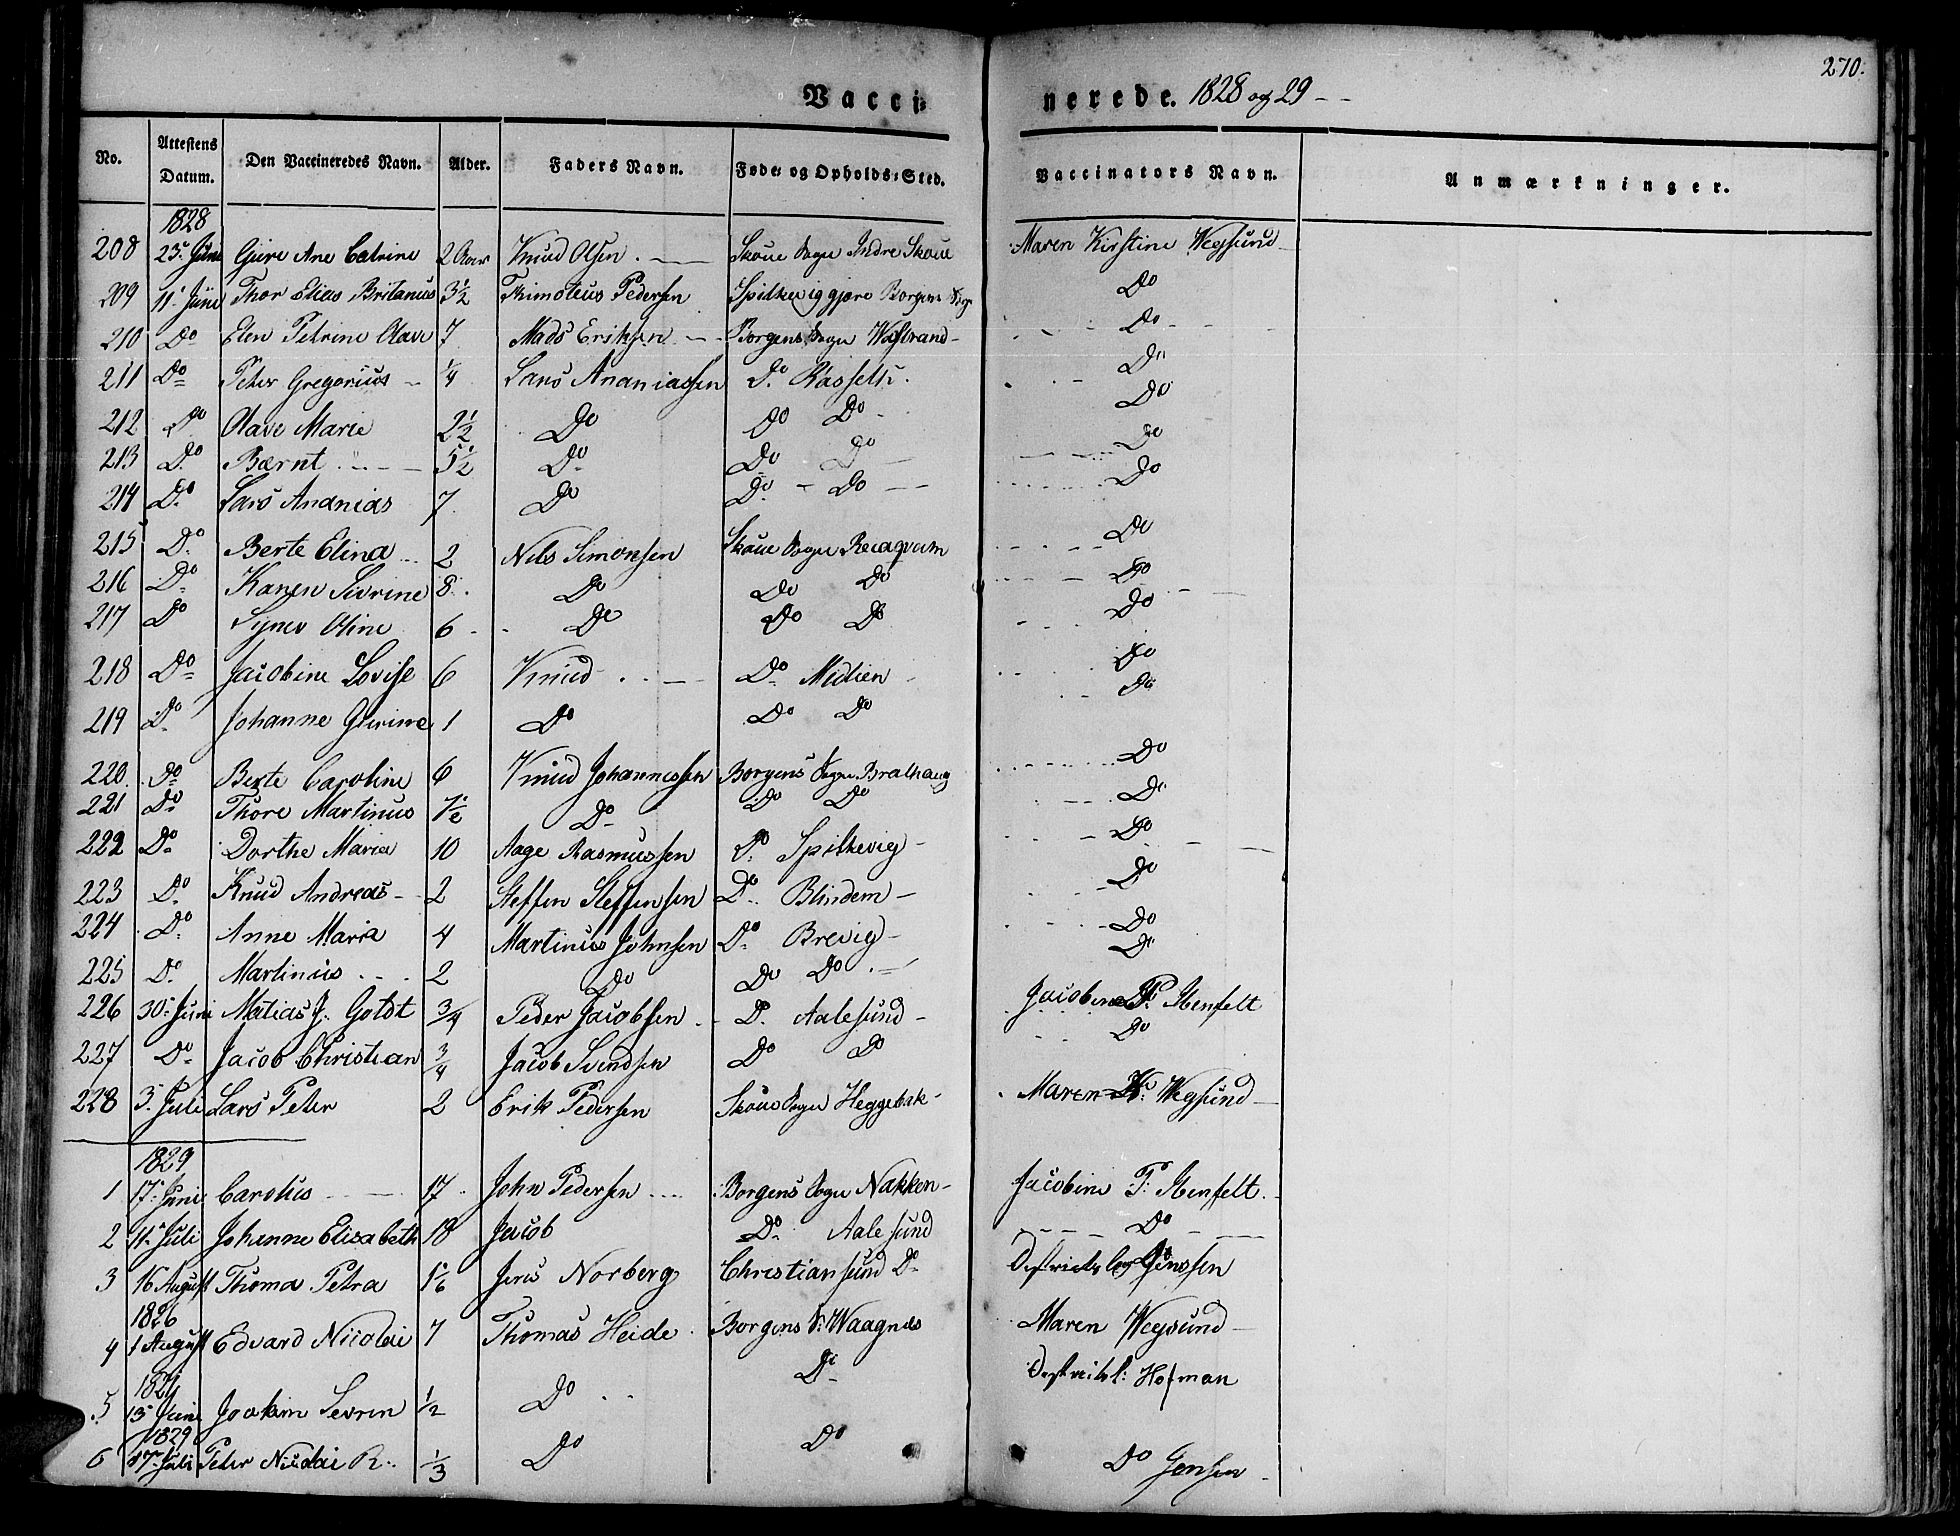 270.
Vacci= nerede. 1828 og 29 - -
No. Attestens Datum. Den Vaccineredes Navn. Alder. Faders Navn. Føde= og Opholds=Sted. Vaccinators Navn. Anmærkninger.
1828
208 23. Juni Gure Ane Catrine 2 Aar Knud Olsen Skoue Sogn Indre Skoue Maren Kirstine Wegsund
209 11. Juni Thor Elias Britanus 3 1/2 Thimoteus Pedersen Borgens Sogn Do
210 Do Elen Petrine Olave 7 Mads Eriksen Borgens Sogn Do
211 Do Peter Gregorius 1/4 Lars Ananiassen Do Do
212 Do Olave Marie 2 1/2 Do Do Do Do
213 Do Bærnt 5 1/2 Do Do Do Do
214 Do Lars Ananias 7 Do Do Do Do
215 Do Berte Elina 2 Nils Simonsen Skoue Sogn Do
216 Do Karen Sivrine 8 Do Do Do Do
217 Do Synev Oline 6 Do Do Do Do
218 Do Jacobine Lovise 6 Knud Do Do
219 Do Johanne Gurine 1 Do Do Do Do
220 Do Berte Caroline 6 Knud Johannessen Borgens Sogn Brathaug Do
221 Do Thore Martinus 1 1/2 Do Do Do Do
222 Do Dorthe Maria 10 Aage Rasmussen Do Spilkevig Do
223 Do Knud Andreas 2 Steffen Steffensen Do Blindem Do
224 Do Anne Maria 4 Martinus Johnsen Do Brevig Do
225 Do Martinus 2 Do Do Do Do
226 30. Juni Matias J. Goldt 3/4 Peder Jacobsen Do Aalesund Jacobine P. Stenfelt
227 Do Jacob Christian 3/4 Jacob Svendsen Do Do Do
228 3. Juli Lars Peter 2 Erik Pedersen Skoue Sogn Heggebak Maren K. Wegsund
1829
1 17. Juni Carolus 17 John Pedersen Borgens Sogn Nakken Jacobine P. Stenfelt
2 11. Juli Johanne Elisabeth 18 Jacob Do Aalesund Do
3 16 August Thoma Petra 1/6 Jens Norberg Christiansund Do Jenssen
1826
4 1 August Edvard Nicolai 7 Thomas Heide Borgens S. Waagnes Maren Wegsund
5 13. Juni Joakim Sevrin 1/2 Do Do Hofman
1829
6 17. Juli Peter Nicolai R. 1/3 Do Do Do Jensen